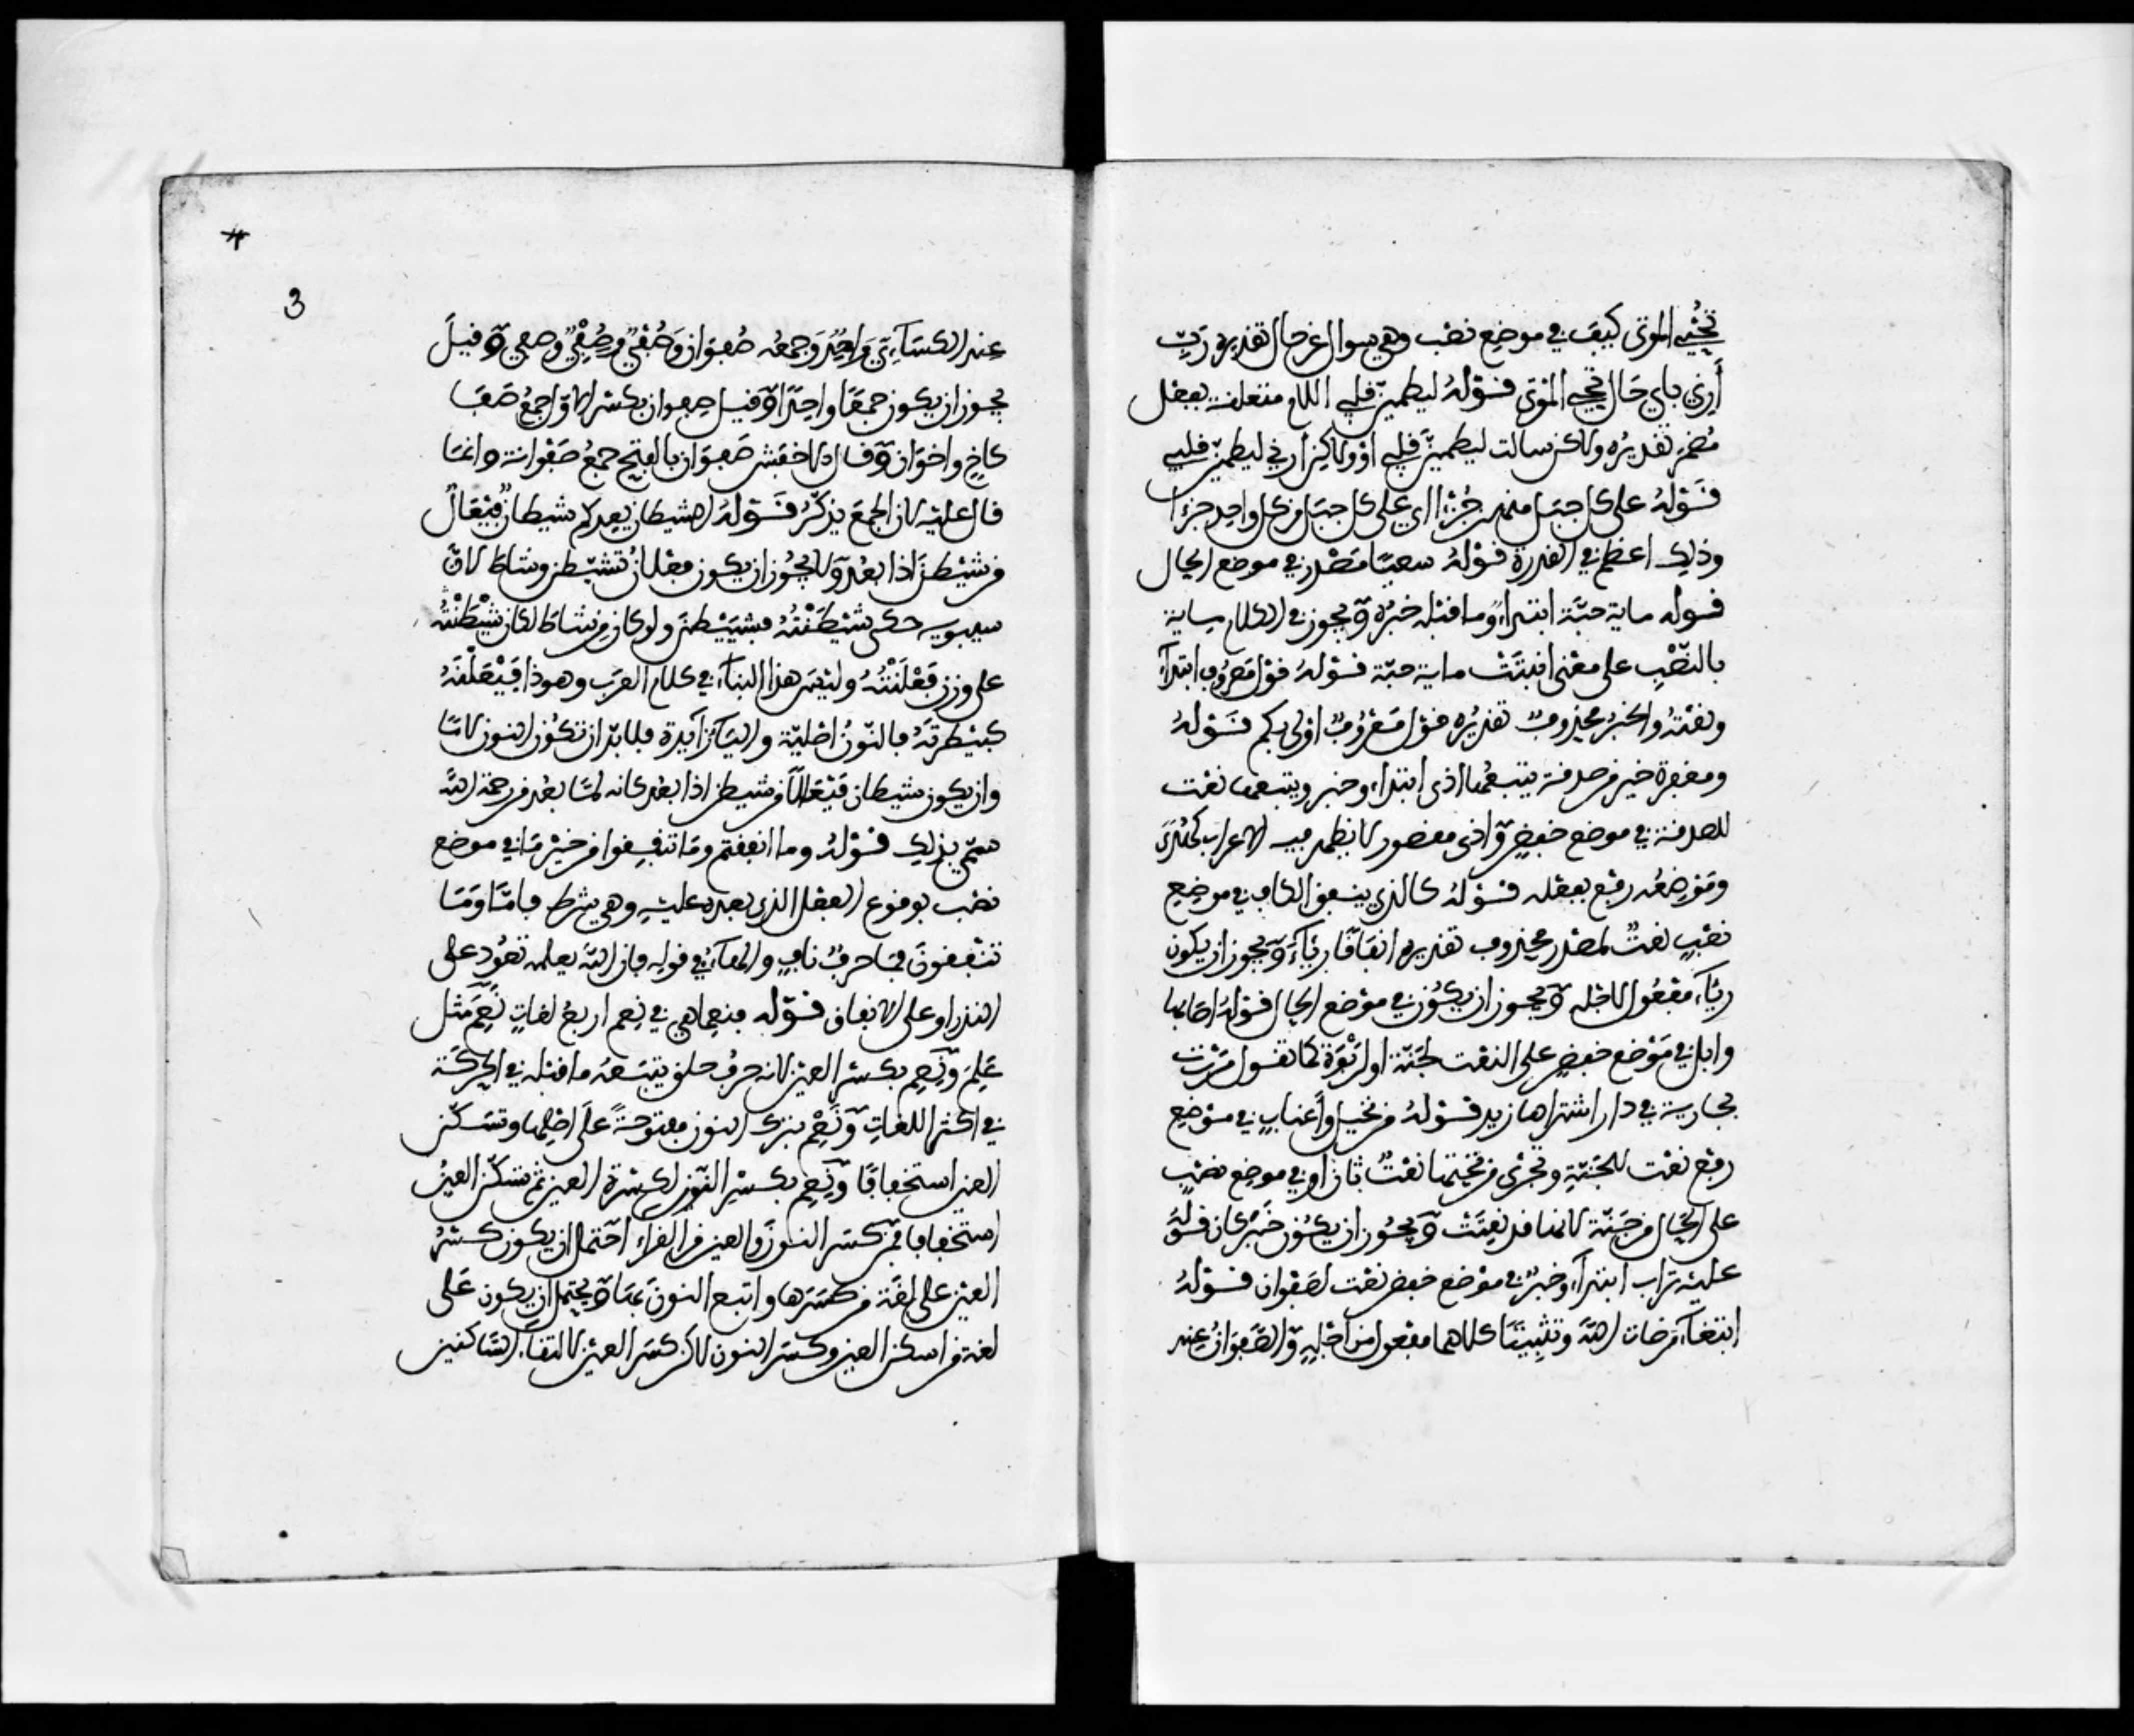 تُحْيِي الموتى كيف في موضع نصب وهي سوال عن حال تقديره رَبِّ
أَرِنِي بأي حَال تحيي الموتى قوْلهُ ليطمئنّ قلبي اللام متعلقة بفعل
مُضمَر تقديرُه ولاكن سالت ليطمئنّ قلبي أوْ ولاكن أرني ليطمئنّ قلبي
قَوْلهُ على كل جبَل منهن جُزْءًا اي على كل جبَل من كل واحد جزءا
وذلك اعظم في القدرة قوْلهُ سعيًا مَصْدر في موضع الحال
قوله ماية حبَّة ابتداءٌ وما قبله خبرُه وَيجوز في الكلام ماية
بالنّصْبِ على معْنى انبتَتْ ماية حبّة قوْلهُ قوْل مَعْرُوف ابتدآءٌ
ونعْتهُ والخبرُ محذوف تقديرُه قوْل مَعْرُوفٌ اوْلى بكم قَوْلهُ
ومغفرة خير من صدقة يتبعُها اذى ابتداء وخبر ويتبعها نعْت
للصدقة في موضع خفضٍ وَاذى مقصور لا يظهر فيه الاعراب كهُدَى
ومَوضِعُه رفع بفعله قَوْلهُ كالذي ينفق الكاف في موضِع
نصْبٍ نعتٌ لمصْدر محذوف تقديره انفاقًا رياءً وَيجوز ان يكون
رِئَآءَ مفعُول لاجْله وَيجوز ان يكُون في موْضع الحال قوْلهُ اصابها
وابل في مَوْضع خفضٍ على النعْت لجَنّة او لرَبْوَة كما تقول مَرَرْت
بجارية في دار اشتراها زيد قوْلهُ من نخيل وأعنابٍ في موْضِع
رفع نعْت للجَنّةِ وتجْرى من تحْتها نعْتٌ ثان او في موضع نصْبٍ
على الحَال من جَنّة لانها قد نُعِتَتْ وَيجُوز ان يكُون خَبَر كان قوْلهُ
عليْه تراب ابتدآءٌ وخبرٌ في موْضع خفض نعْت لصَفْوان قوْلهُ
ابتغآءَ مَرضات اللهِ وتثبِيتًا كلاهما مفعول من اجْلِهِ وَالصّفْوانُ عِند
3
عِند الكِسَآءِيِّ وَاحِدٌ وَجمعُه صُفوَان وَصُفْيٌ وَصِفْيٌ وصفي وَقيلَ
يجوز ان يكون جمعًا واحدًا وَقيل صِفوان بكسْر الاوّل جمعُ صَفَا
كاخٍ واخوَان وَقال الاخفش صَفوَان بالفتح جمعُ صَفْوانة وَانما
قال عليْه لان الجمعَ يذكّر قَوْلهُ الشيطان يعدكم شيطانٌ فيْعَالٌ
من شيْطنَ اذا بعُد وَلا يجُوز ان يكون فعْلان من تشيّطن وشاط لانّ
سيبويه حكى شيْطَنْتُهُ فتشيْطنَ ولو كان من شاط لكان شيْطَنْتُه
على وزن فَعْلَنْتُهُ وليْسَ هذا البنآءُ في كلام العرَب وهو ذا فَيْعَلْتُهُ
كبَيْطرتُهُ فالنّونُ اصْليّة والياءُ زآيدة فلا بدّ ان تكُون النون لامًا
وان يكون شيطان فَيْعَالاً من شيطن اذا بعُد كانه لمّا بعُد من رحمة اللهِ
سمّي بذلك قوْلهُ وما انفقتم وَما تنفِقوا من خيْر مَا في موضع
نصْب بوقوع الفعْل الذي بعده عليْهِ وهي شرط فامّا وَمَا
تنْفقونَ فما حرفٌ نافٍ والهآءُ في قولِه فان اللهَ يعلمه تعُود على
النذر او على الانفاق قَوْله فنِعِمّا هي في نِعم اربعُ لغاتٍ نَعِمَ مثل
عَلِمَ وَنِعِم بكسْر العين لانه حرفُ حلق يتبَعُه ما قبْله في الحركَة
في اكثر اللغاتِ وَنَعْم بترك النون مفتوحَةً علَى اصْلها وتسَكّن
العين استخفافًا وَنِعْم بكسْرِ النّون لكسْرة العين ثم تسَكّن العينُ
استخفافا فمَن كسَر النون وَالعين من القراء احْتمل ان يكون كسْرُ
العيْن على لُغَة من كسَرها واتبع النون بها وَيحْتمل ان يكون عَلى
لغة من اسكن العين وكسَر النون لاكن كسَر العيْن لالتقاءِ السّاكنين